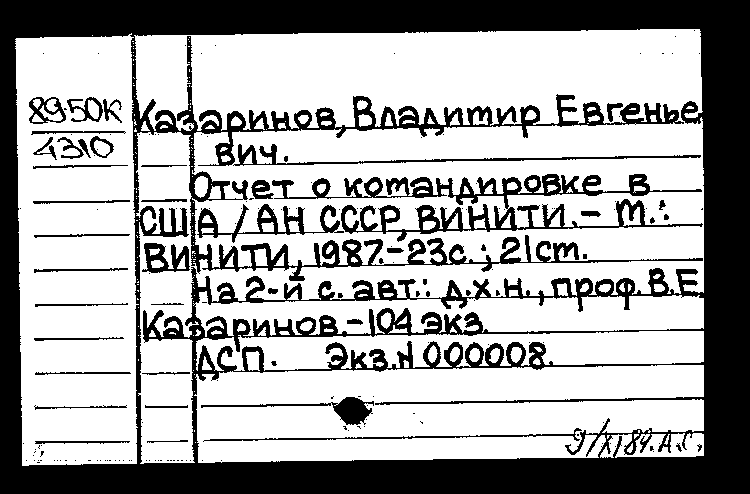 89-50К
4310
Казаринов, Владимир Евгенье
вич.
Отчет о командировке в
США / АН СССР, ВИНИТИ. – М.:
ВИНИТИ, 1987.–23с.; 21см.
На 2-й с. авт.: д.х.н., проф. В.Е.
Казаринов.–104 экз.
ДСП. Экз. N 000008.
9/XI 89. А.С.